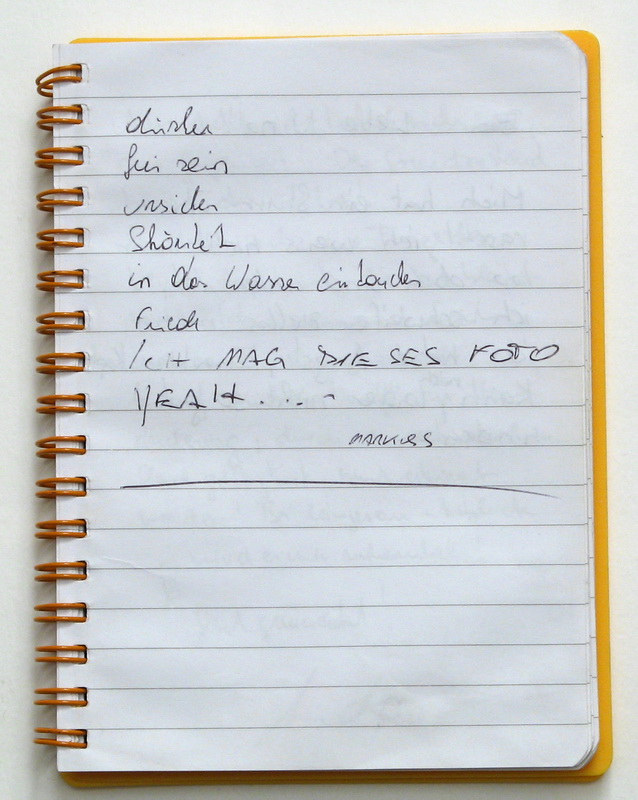 düster
frei sein
unsicher
Shönheit
in das Wasser eintauchen
Friede
ICH MAG DIESES FOTO
YEAH . . . -
MARKUSS